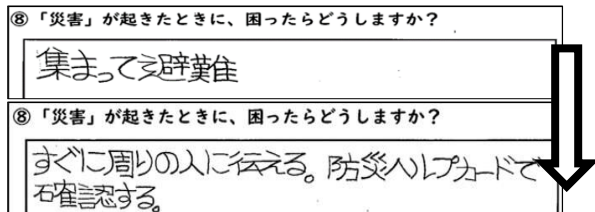 ⑧「災害」が起きたときに、困ったらどうしますか？
集まって避難
⑧「災害」が起きたときに、困ったらどうしますか？
すぐに周りの人に伝える。防災ヘルプカードで
確認する。